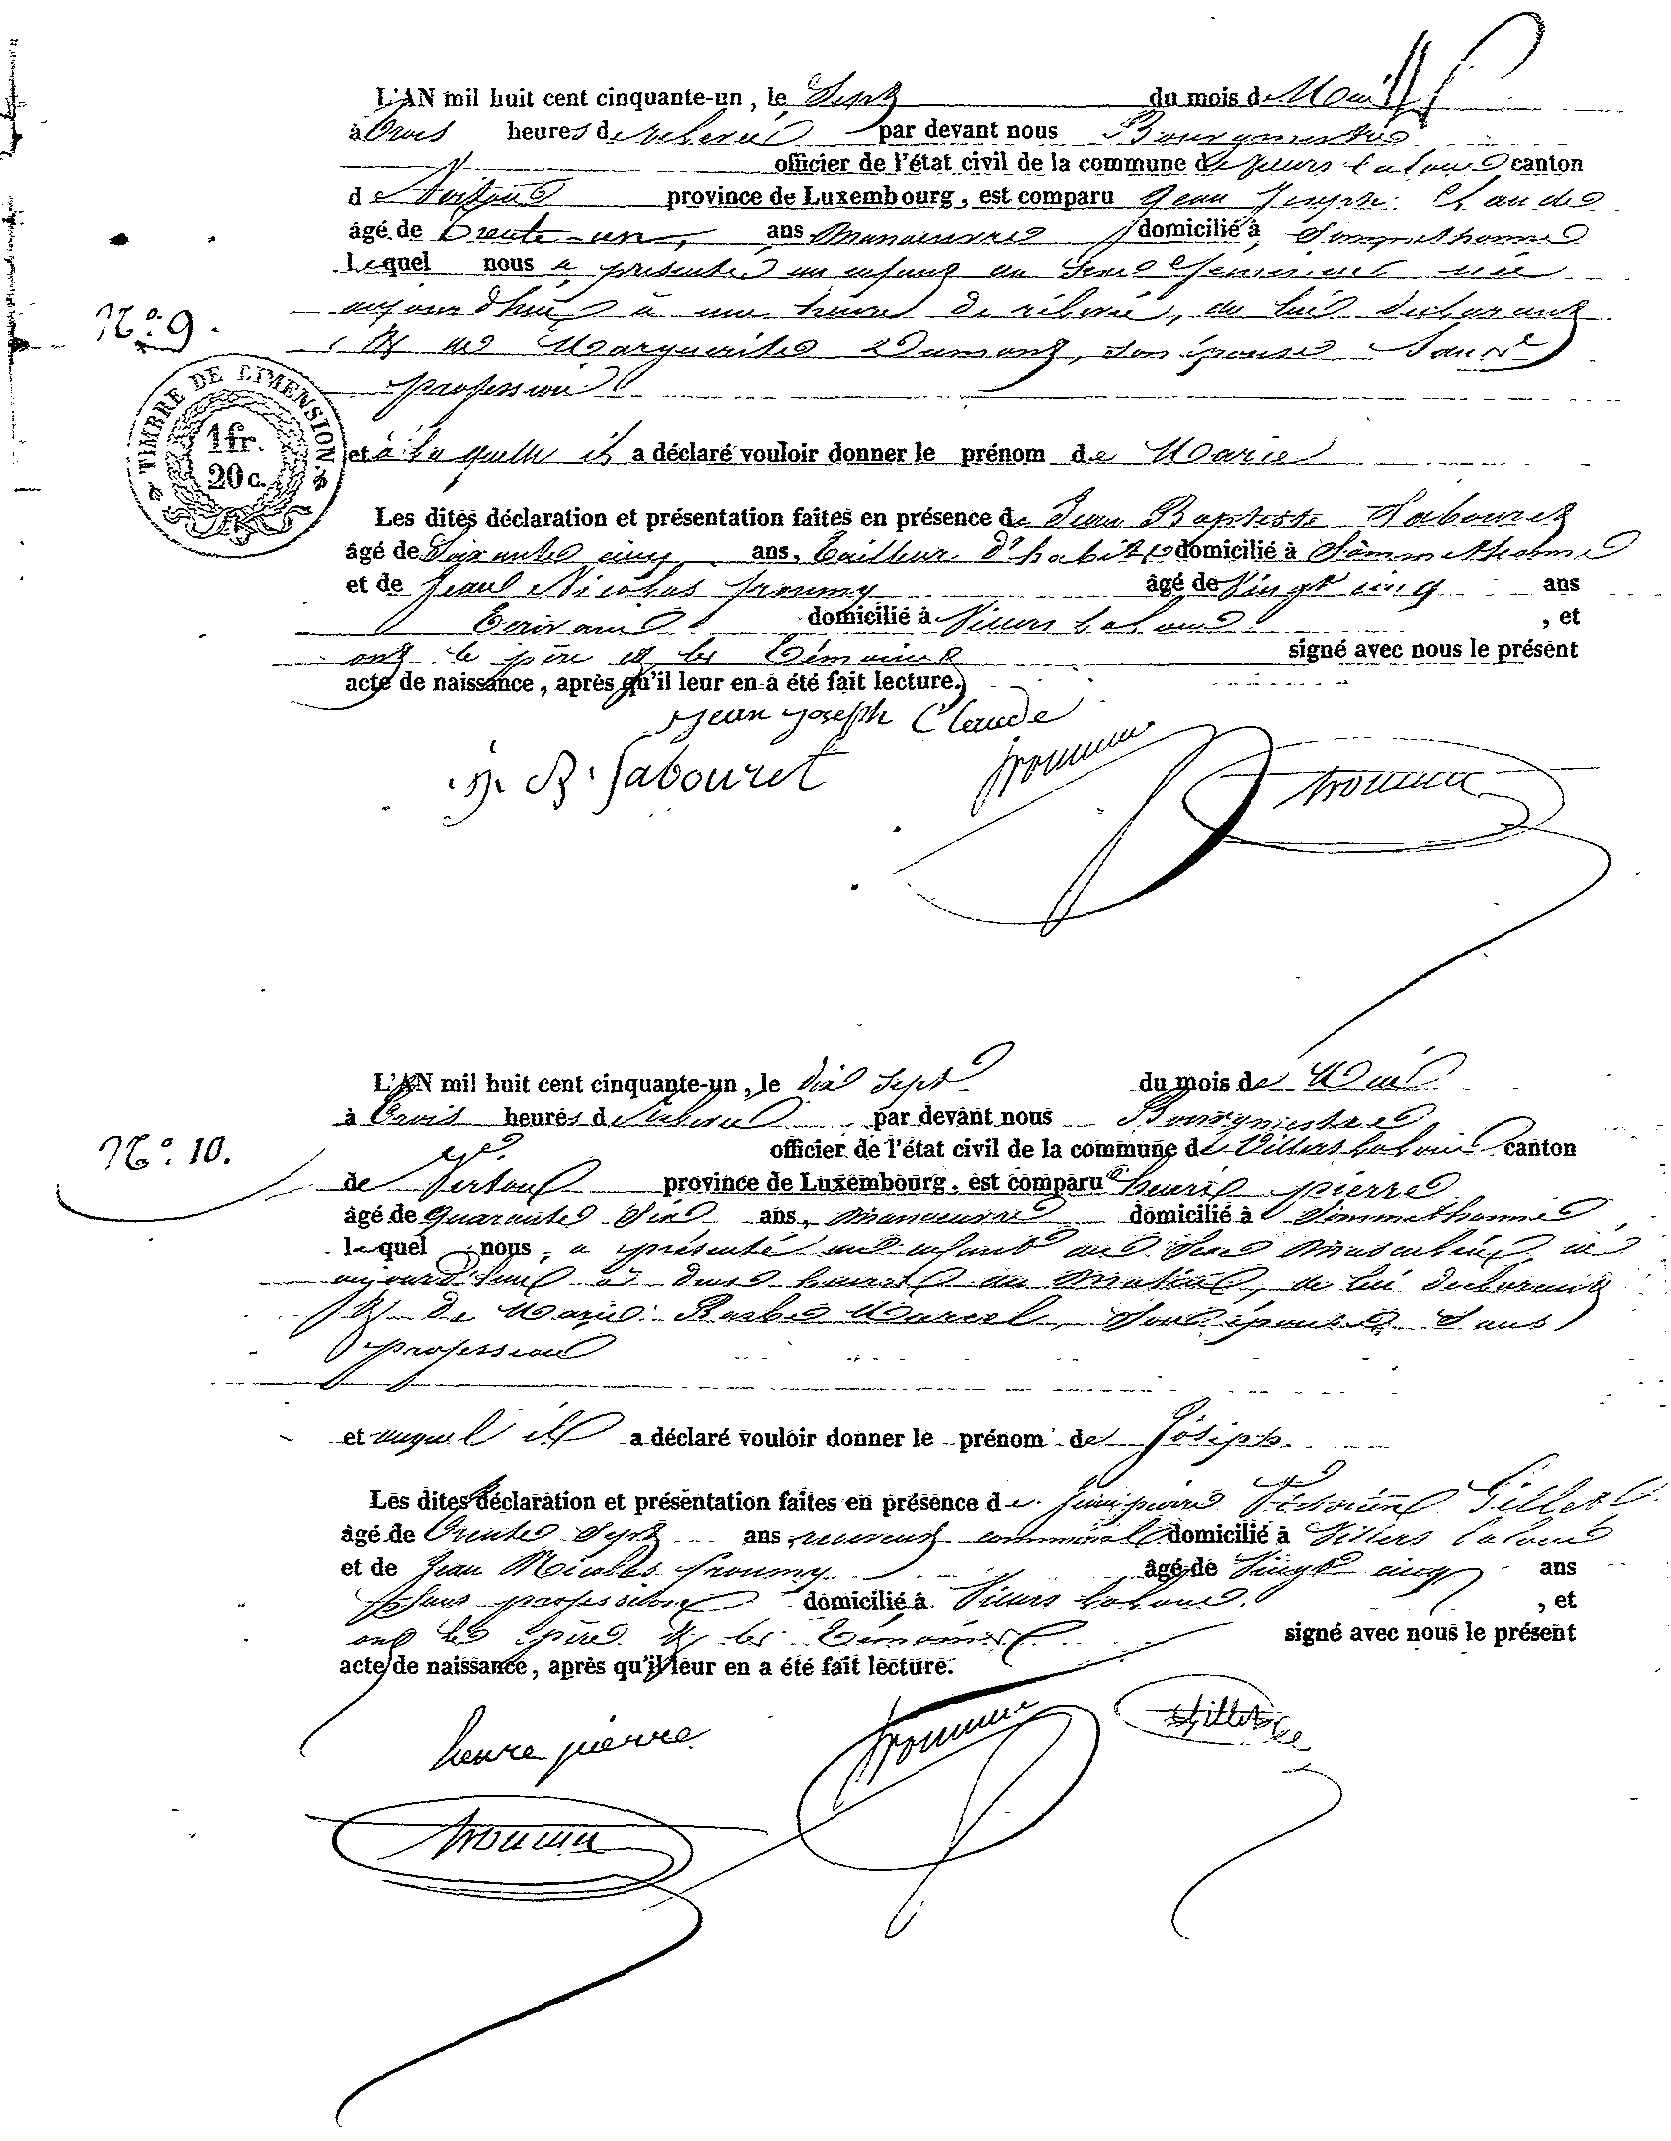 L'AN mil huit cent cinquante-un, le Sept du mois de Mai
à trois heures de relevée par devant nous Bourgmestre
officier de l'état civil de la commune de Villers la loue canton
de Virton province de Luxembourg, est comparu Jean Joseph Claude
âgé de trente-un ans manœuvre domicilié à Sommethonne
lequel nous a présenté un enfant du Sexe féminin née
aujourd'hui à une heure de relevée, de lui déclarant
N.o 9.
et de Marguerite Dumont, son épouse Sans
profession
TIMBRE DE DIMENSION.
1 fr.
20 c.
et à laquelle il a déclaré vouloir donner le prénom de Marie
Les dites déclaration et présentation faites en présence de Jean Baptiste Sabouret
âgé de Soixante cinq ans, tailleur d'habits domicilié à Sommethonne
et de Jean Nicolas froumy âgé de Vingt cinq ans
Ecrivain domicilié à Villers la loue , et
ont le père et les témoins signé avec nous le présent
acte de naissance, après qu'il leur en a été fait lecture.
Jean joseph Claude
J. B. Sabouret
L'AN mil huit cent cinquante-un, le dix sept du mois de Mai
à trois heures de relevée par devant nous Bourgmestre
N.o 10.
officier de l'état civil de la commune de Villers la loue canton
de Virton province de Luxembourg, est comparu henri pierre
âgé de quarante Six ans, manœuvre domicilié à Sommethonne
lequel nous a présenté un enfant du Sexe Masculin, né
aujourd'hui à deux heures du Matin, de lui déclarant
et de Marie Barbe Marcel, Son épouse Sans
profession
et auquel il a déclaré vouloir donner le prénom de Joseph
Les dites déclaration et présentation faites en présence de Jean pierre Gillet
âgé de trente Sept ans receveur communal domicilié à Villers la loue
et de Jean Nicolas froumy âgé de Vingt cinq ans
Sans profession domicilié à Villers la loue , et
ont le père et les témoins signé avec nous le présent
acte de naissance, après qu'il leur en a été fait lecture.
henre pierre
Gillet